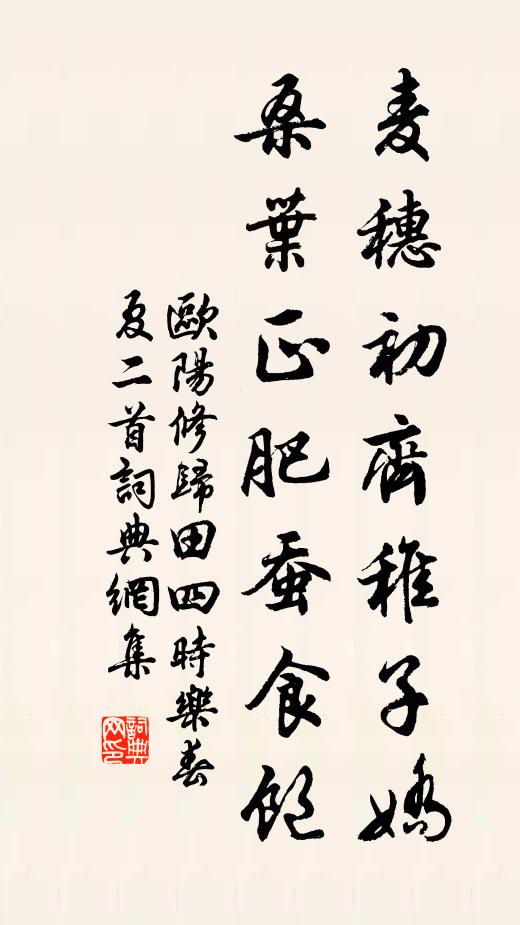 麦穗初齊稚子嬌
桑葉正肥蚕食飽
歐陽修歸田四時樂春
夏二首詞典網集
詞典
网印